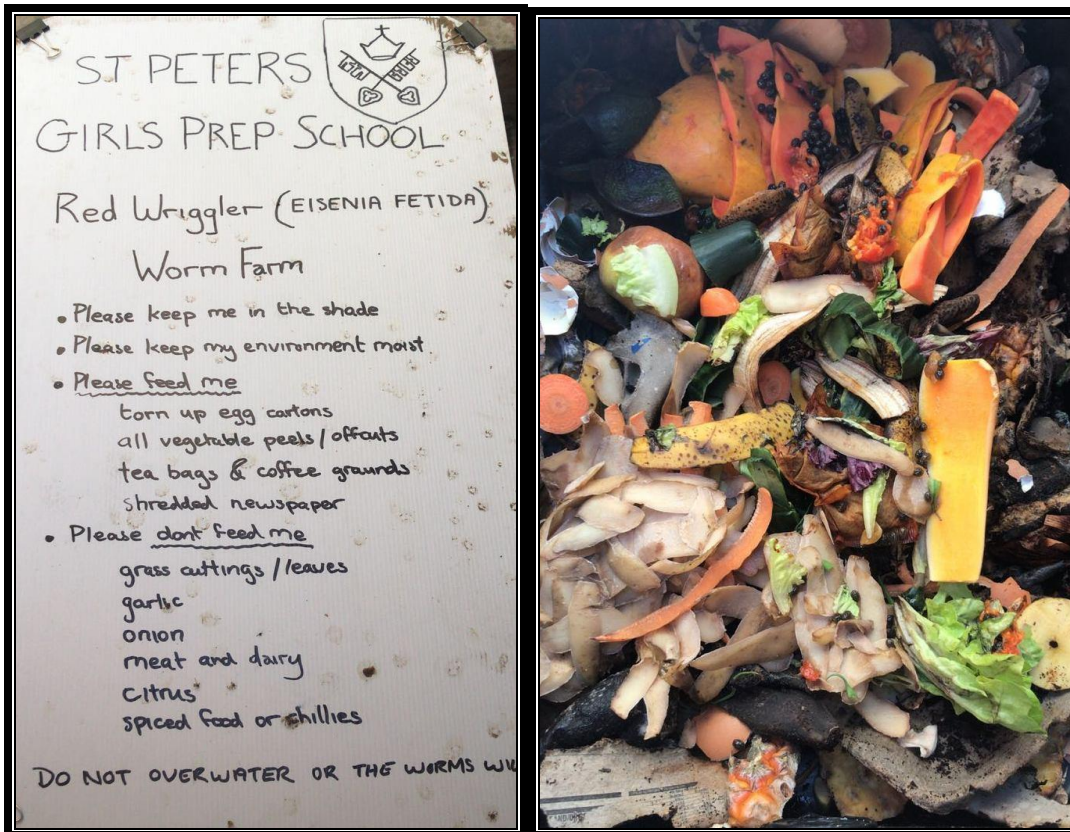 ST PETERS
GIRLS PREP SCHOOL
Red Wriggler (EISENIA FETIDA)
Worm Farm
• Please keep me in the shade
• Please keep my environment moist
• Please feed me
torn up egg cartons
all vegetable peels/offcuts
tea bags & coffee grounds
shredded newspaper
• Please dont feed me
grass cuttings/leaves
garlic
onion
meat and dairy
citrus
spiced food or chillies
DO NOT OVERWATER OR THE WORMS